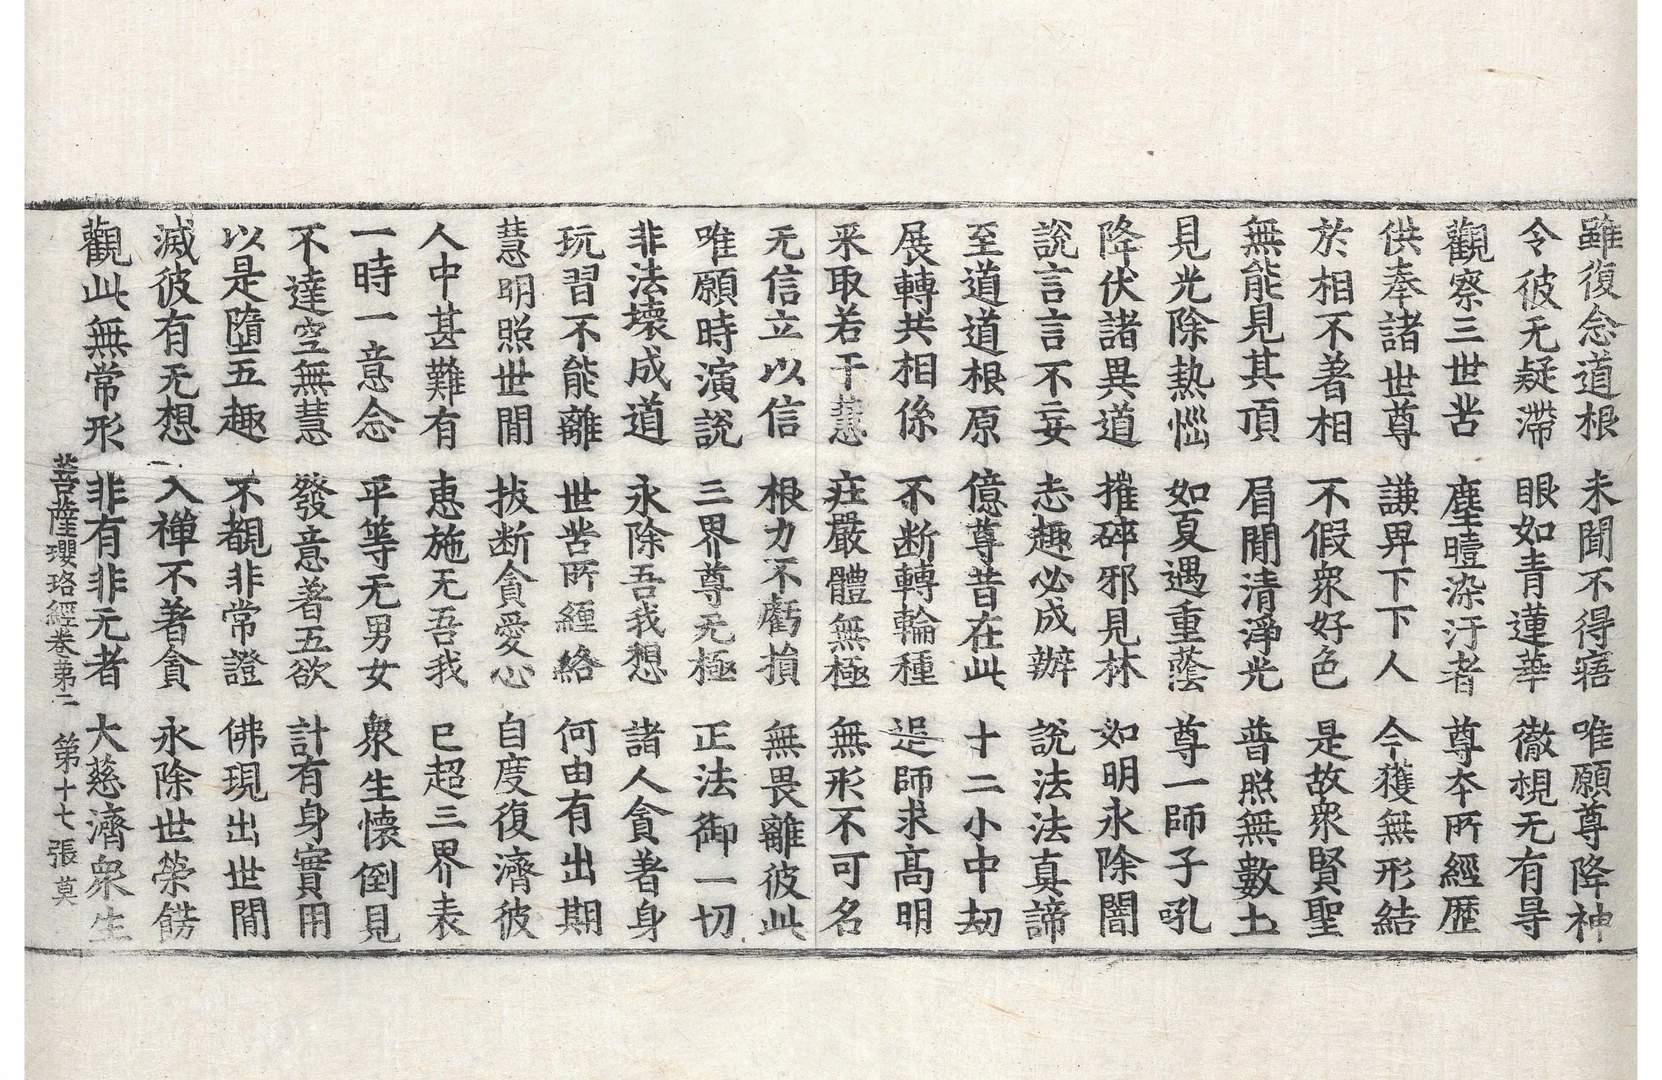 雖復念道根 未聞不得寤 唯願尊降神
令彼无疑滯 眼如青蓮華 徹覩无有㝵
觀察三世苦 塵曀染汙者 尊本所經歷
供奉諸世尊 謙畀下下人 今獲無形結
於相不著相 不假衆好色 是故衆賢聖
無能見其頂 眉間清淨光 普照無數土
見光除熱惱 如夏遇重蔭 尊一師子吼
降伏諸異道 摧碎邪見林 如明永除闇
說言言不妄 志趣必成辦 說法法真諦
至道道根原 億尊昔在此 十二小中劫
展轉共相係 不断轉輪種 追師求高明
采取若干慧 庄嚴體無極 無形不可名
无信立以信 根力不虧損 無畏離彼此
唯願時演說 三界尊无極 正法御一切
非法壞成道 永除吾我想 諸人貪著身
玩習不能離 世苦所緾絡 何由有出期
慧明照世間 拔断貪愛心 自度復濟彼
人中甚難有 惠施无吾我 已超三界表
一時一意念 平等无男女 衆生懷倒見
不達空無慧 發意著五欲 計有身實用
以是墮五趣 不觀非常證 佛現出世間
滅彼有无想 入禪不著貪 永除世榮餝
觀此無常形 非有非无者 大慈濟衆生
菩薩瓔珞經卷苐二 第十七張 莫